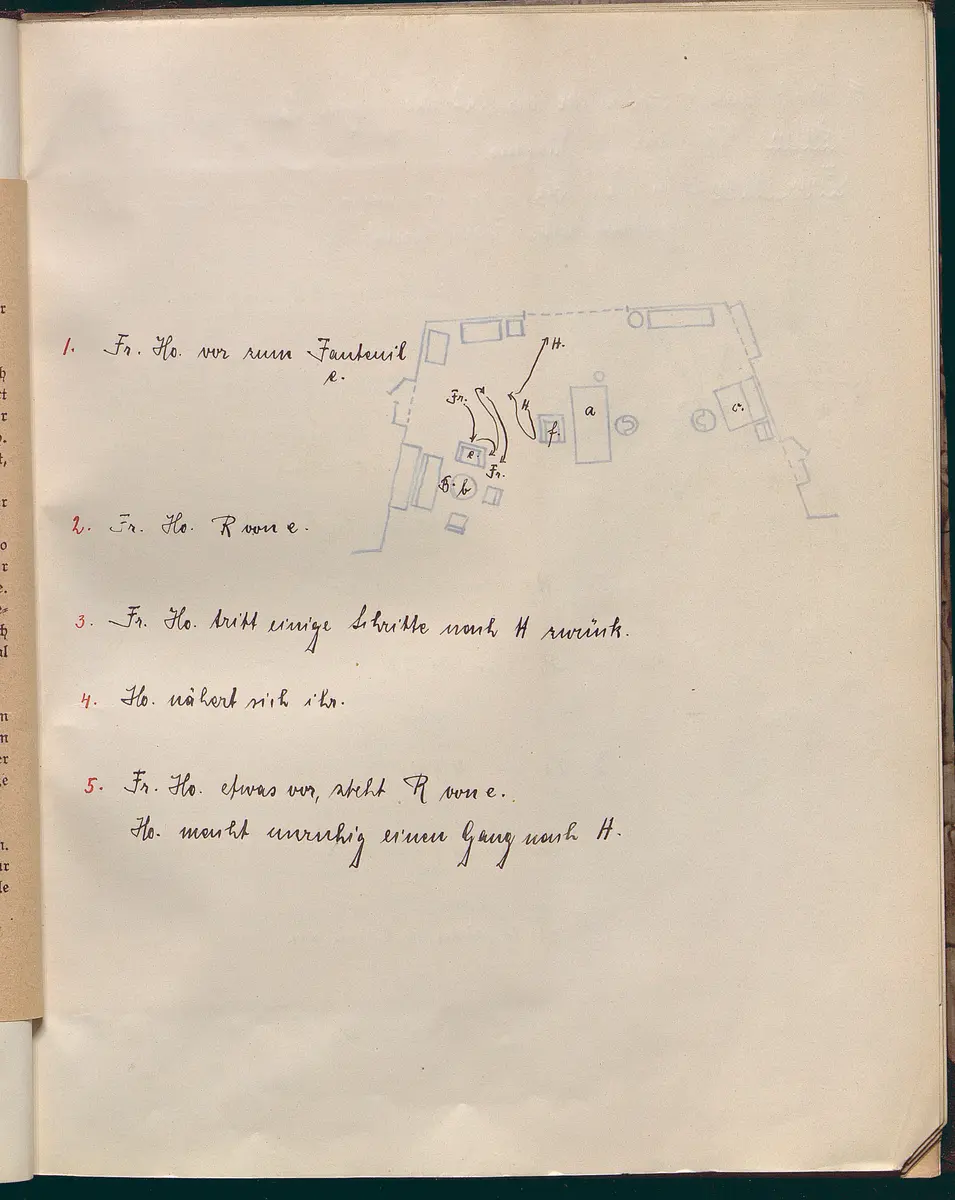 1. Fr. Ho. vor zum Fauteuil
e.
H.
Fr.
H
a
c.
f.
e.
Fr.
b
2. Fr. Ho. R von e.
3. Fr. Ho. tritt einige Schritte nach H zurück.
4. Ho. nähert sich ihr.
5. Fr. Ho. etwas vor, steht R von e.
Ho. macht unruhig einen Gang nach H.